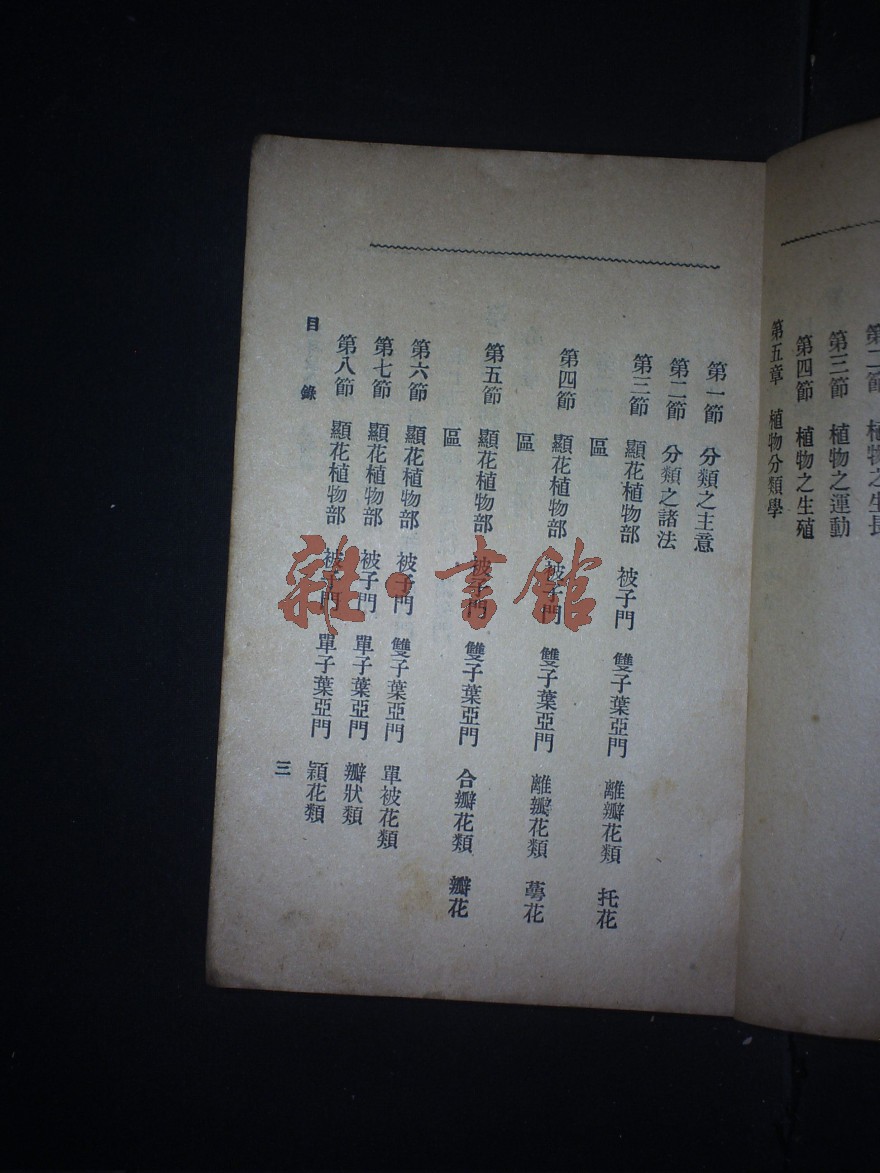 第二節 植物之生長
第三節 植物之運動
第四節 植物之生殖
第五章 植物分類學
第一節 分類之主意
第二節 分類之諸法
第三節 顯花植物部 被子門 雙子葉亞門 離瓣花類 托花
區
第四節 顯花植物部 被子門 雙子葉亞門 離瓣花類 萼花
區
第五節 顯花植物部 被子門 雙子葉亞門 合瓣花類 瓣花
區
第六節 顯花植物部 被子門 雙子葉亞門 單被花類
第七節 顯花植物部 被子門 單子葉亞門 瓣狀類
第八節 顯花植物部 被子門 單子葉亞門 穎花類
目錄
三
雜·書館